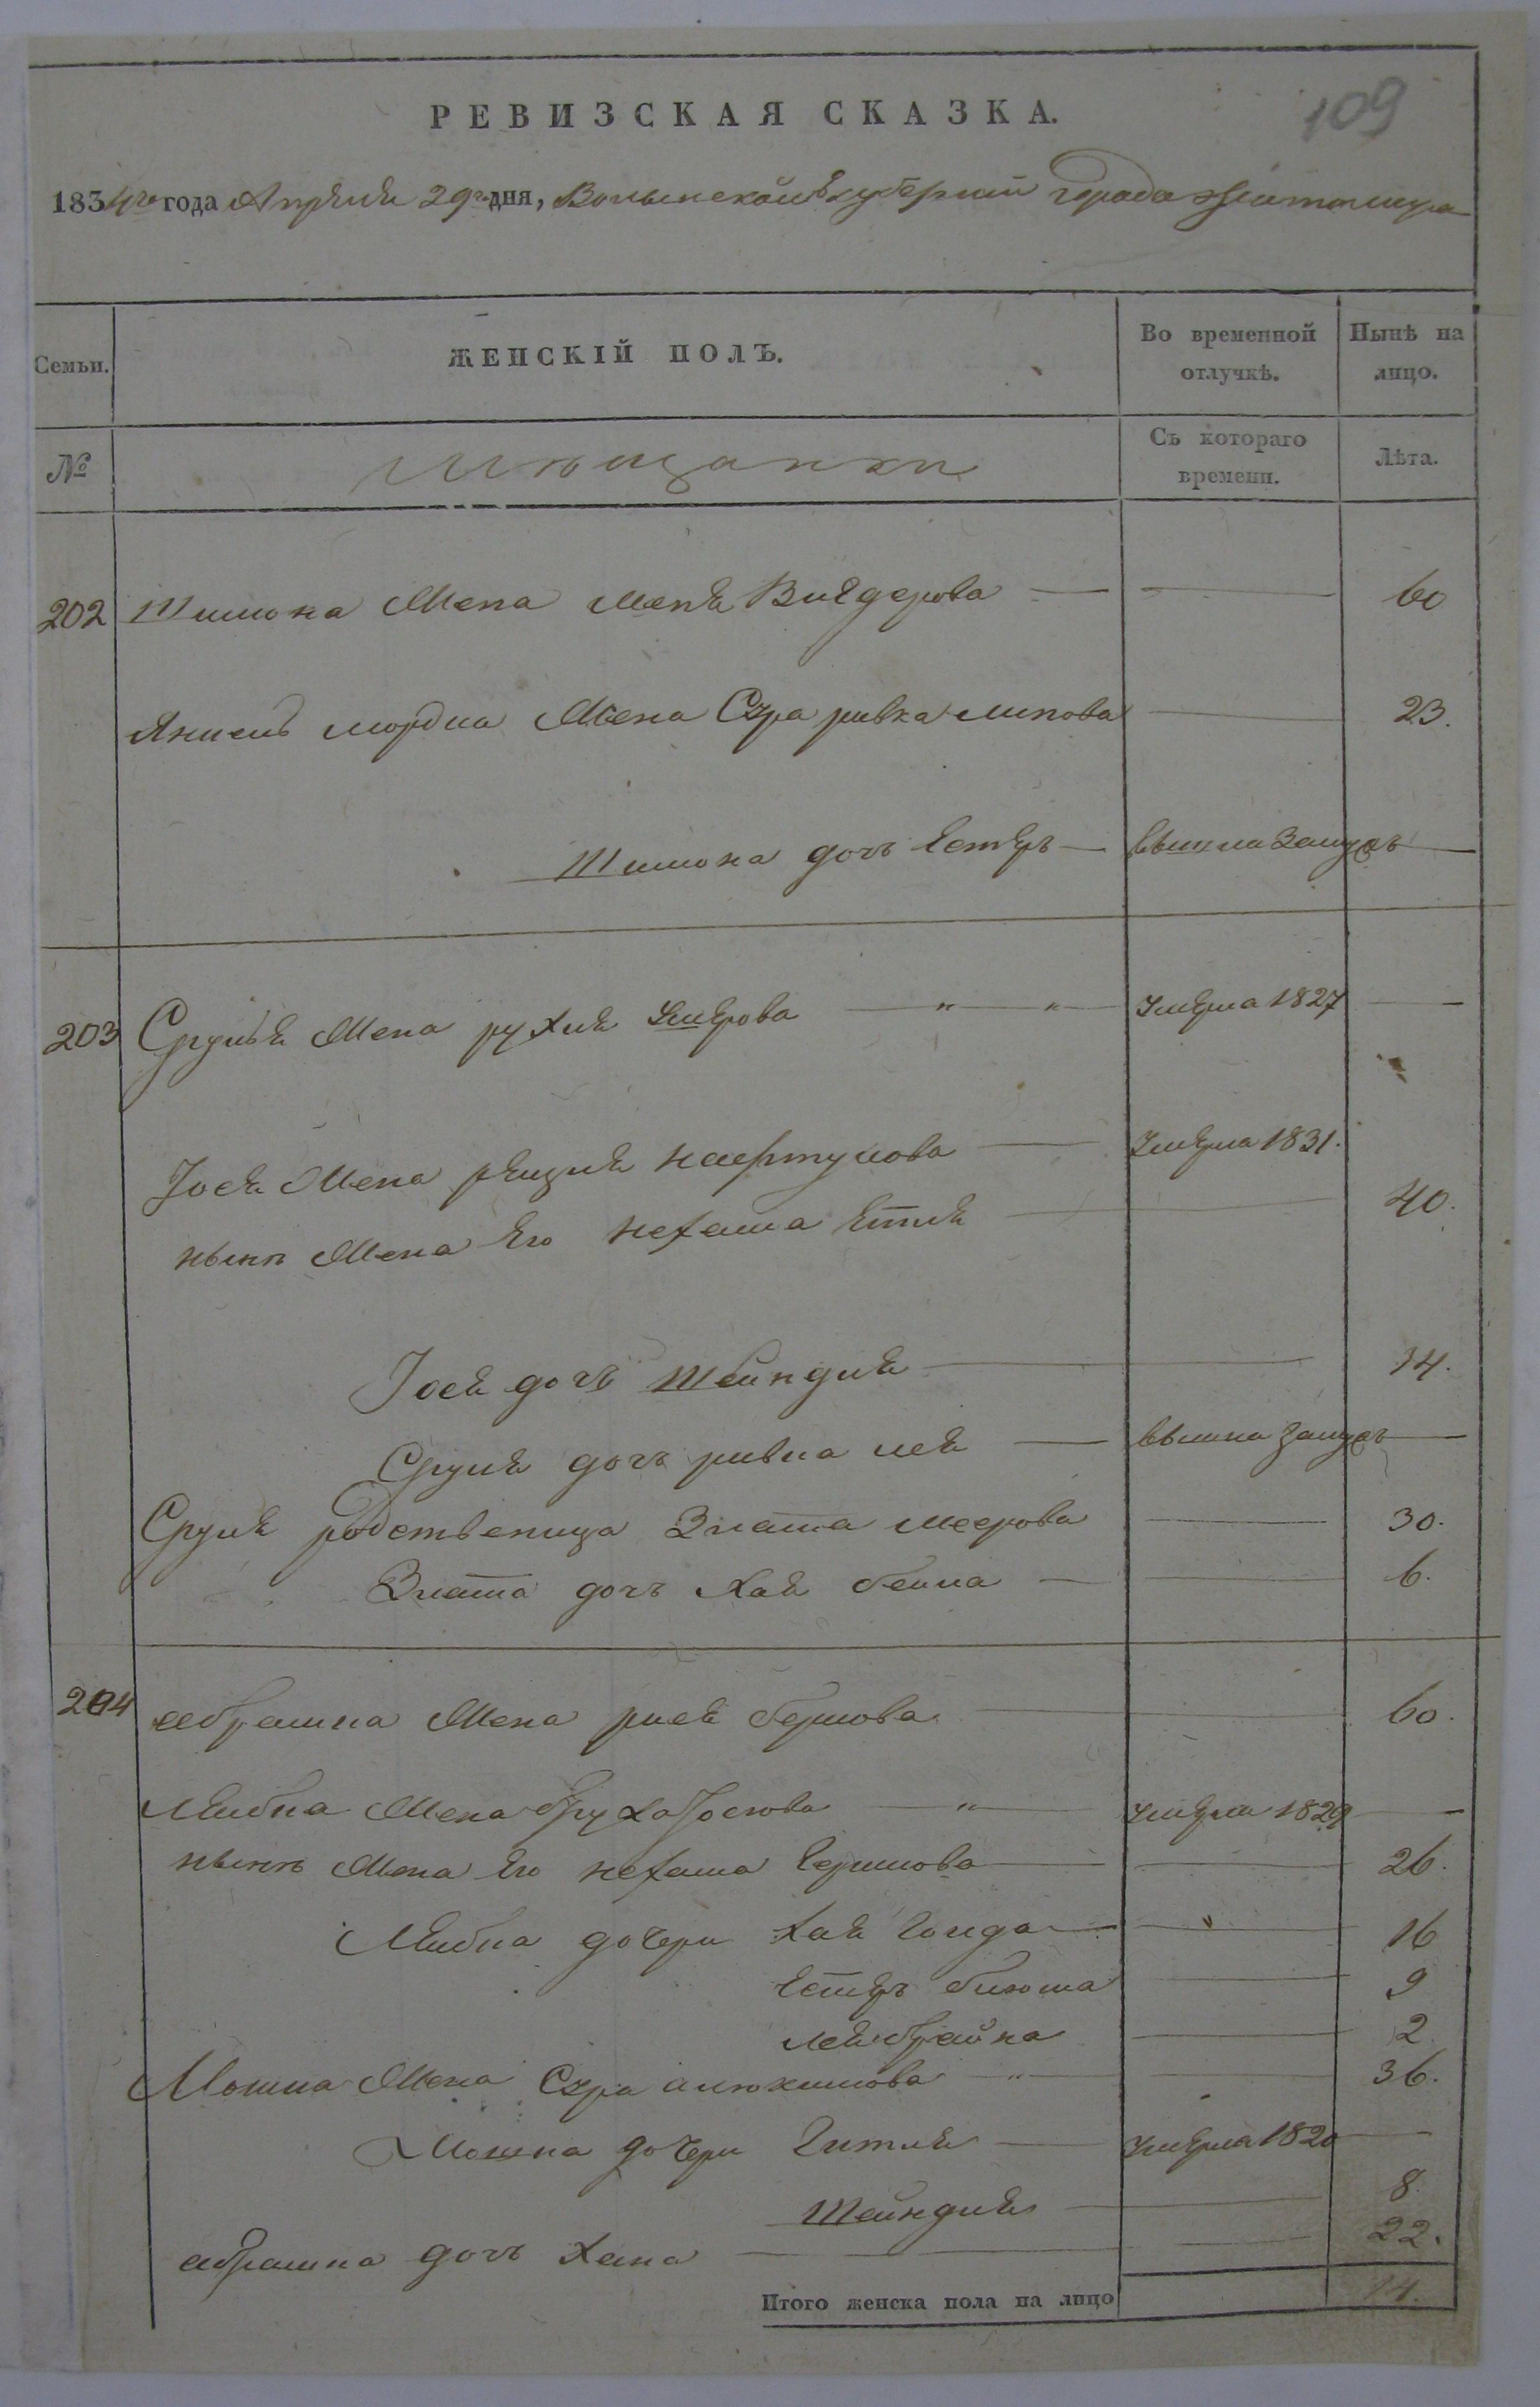 109
РЕВИЗСКАЯ СКАЗКА.
1834го года Апреля 29го дня, Волынской губернии города Житомира
Семьи.
ЖЕНСКІЙ ПОЛЪ.
Во временной отлучкѣ.
Нынѣ на лицо.
№
Мещанки
Съ котораго времени.
Лѣта.
202 Шимона Жена Маня 60
Янкель мордка Жена Сура ривка липова 23.
Шимона дочь Естеръ вышла замужъ
203 Сруля Жена рухля умерла 1827
Іося Жена умерла 1831.
нынѣ Жена Его нехама Етля 40.
Іося дочь Шейндля 14.
Сруля дочь ривка лея вышла замужъ
Сруля родственица Злата меерова 30.
Злата дочь Хая бейла 6.
204 абрамка Жена рися беркова 60.
Лейбка Жена бруха Іоселова умерла 1829
нынѣ Жена Его нехама Гершкова 26.
Лейбка дочери Хая Голда 16
Естеръ блюма 9
лея брайна 2.
Мошка Жена Сура 36.
Мошка дочери Гитля умерла 1820
Шейндля 8.
абрамка дочь Хана 22.
Итого женска пола на лицо 14.